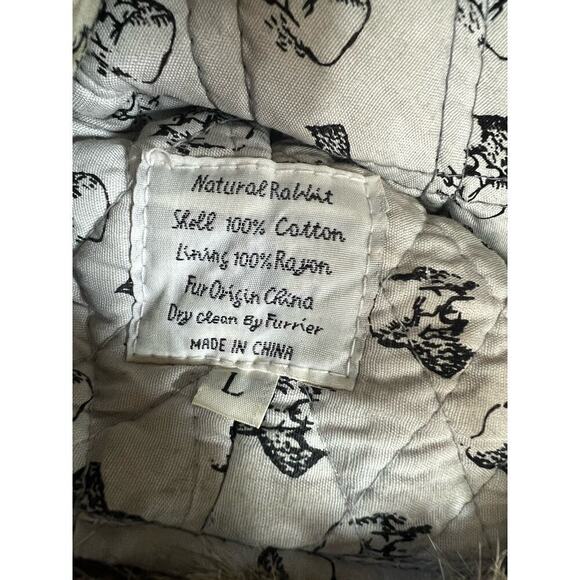 Natural Rabbit
Shell 100% Cotton
Lining 100% Rayon
Fur Origin China
Dry clean By Furrier
MADE IN CHINA
L